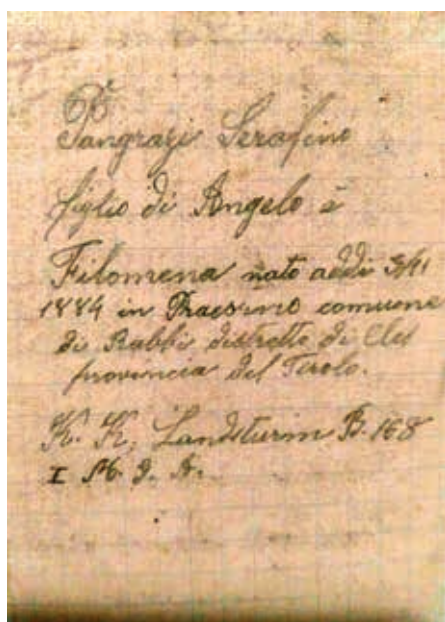 Pangrazi Serafino
figlio di Angelo è
Filomena nato addi 3/11
1884 in comune
di Rabbi distretto di Cles
provincia del Tirolo.
K. K. Landsturm B. 168
I